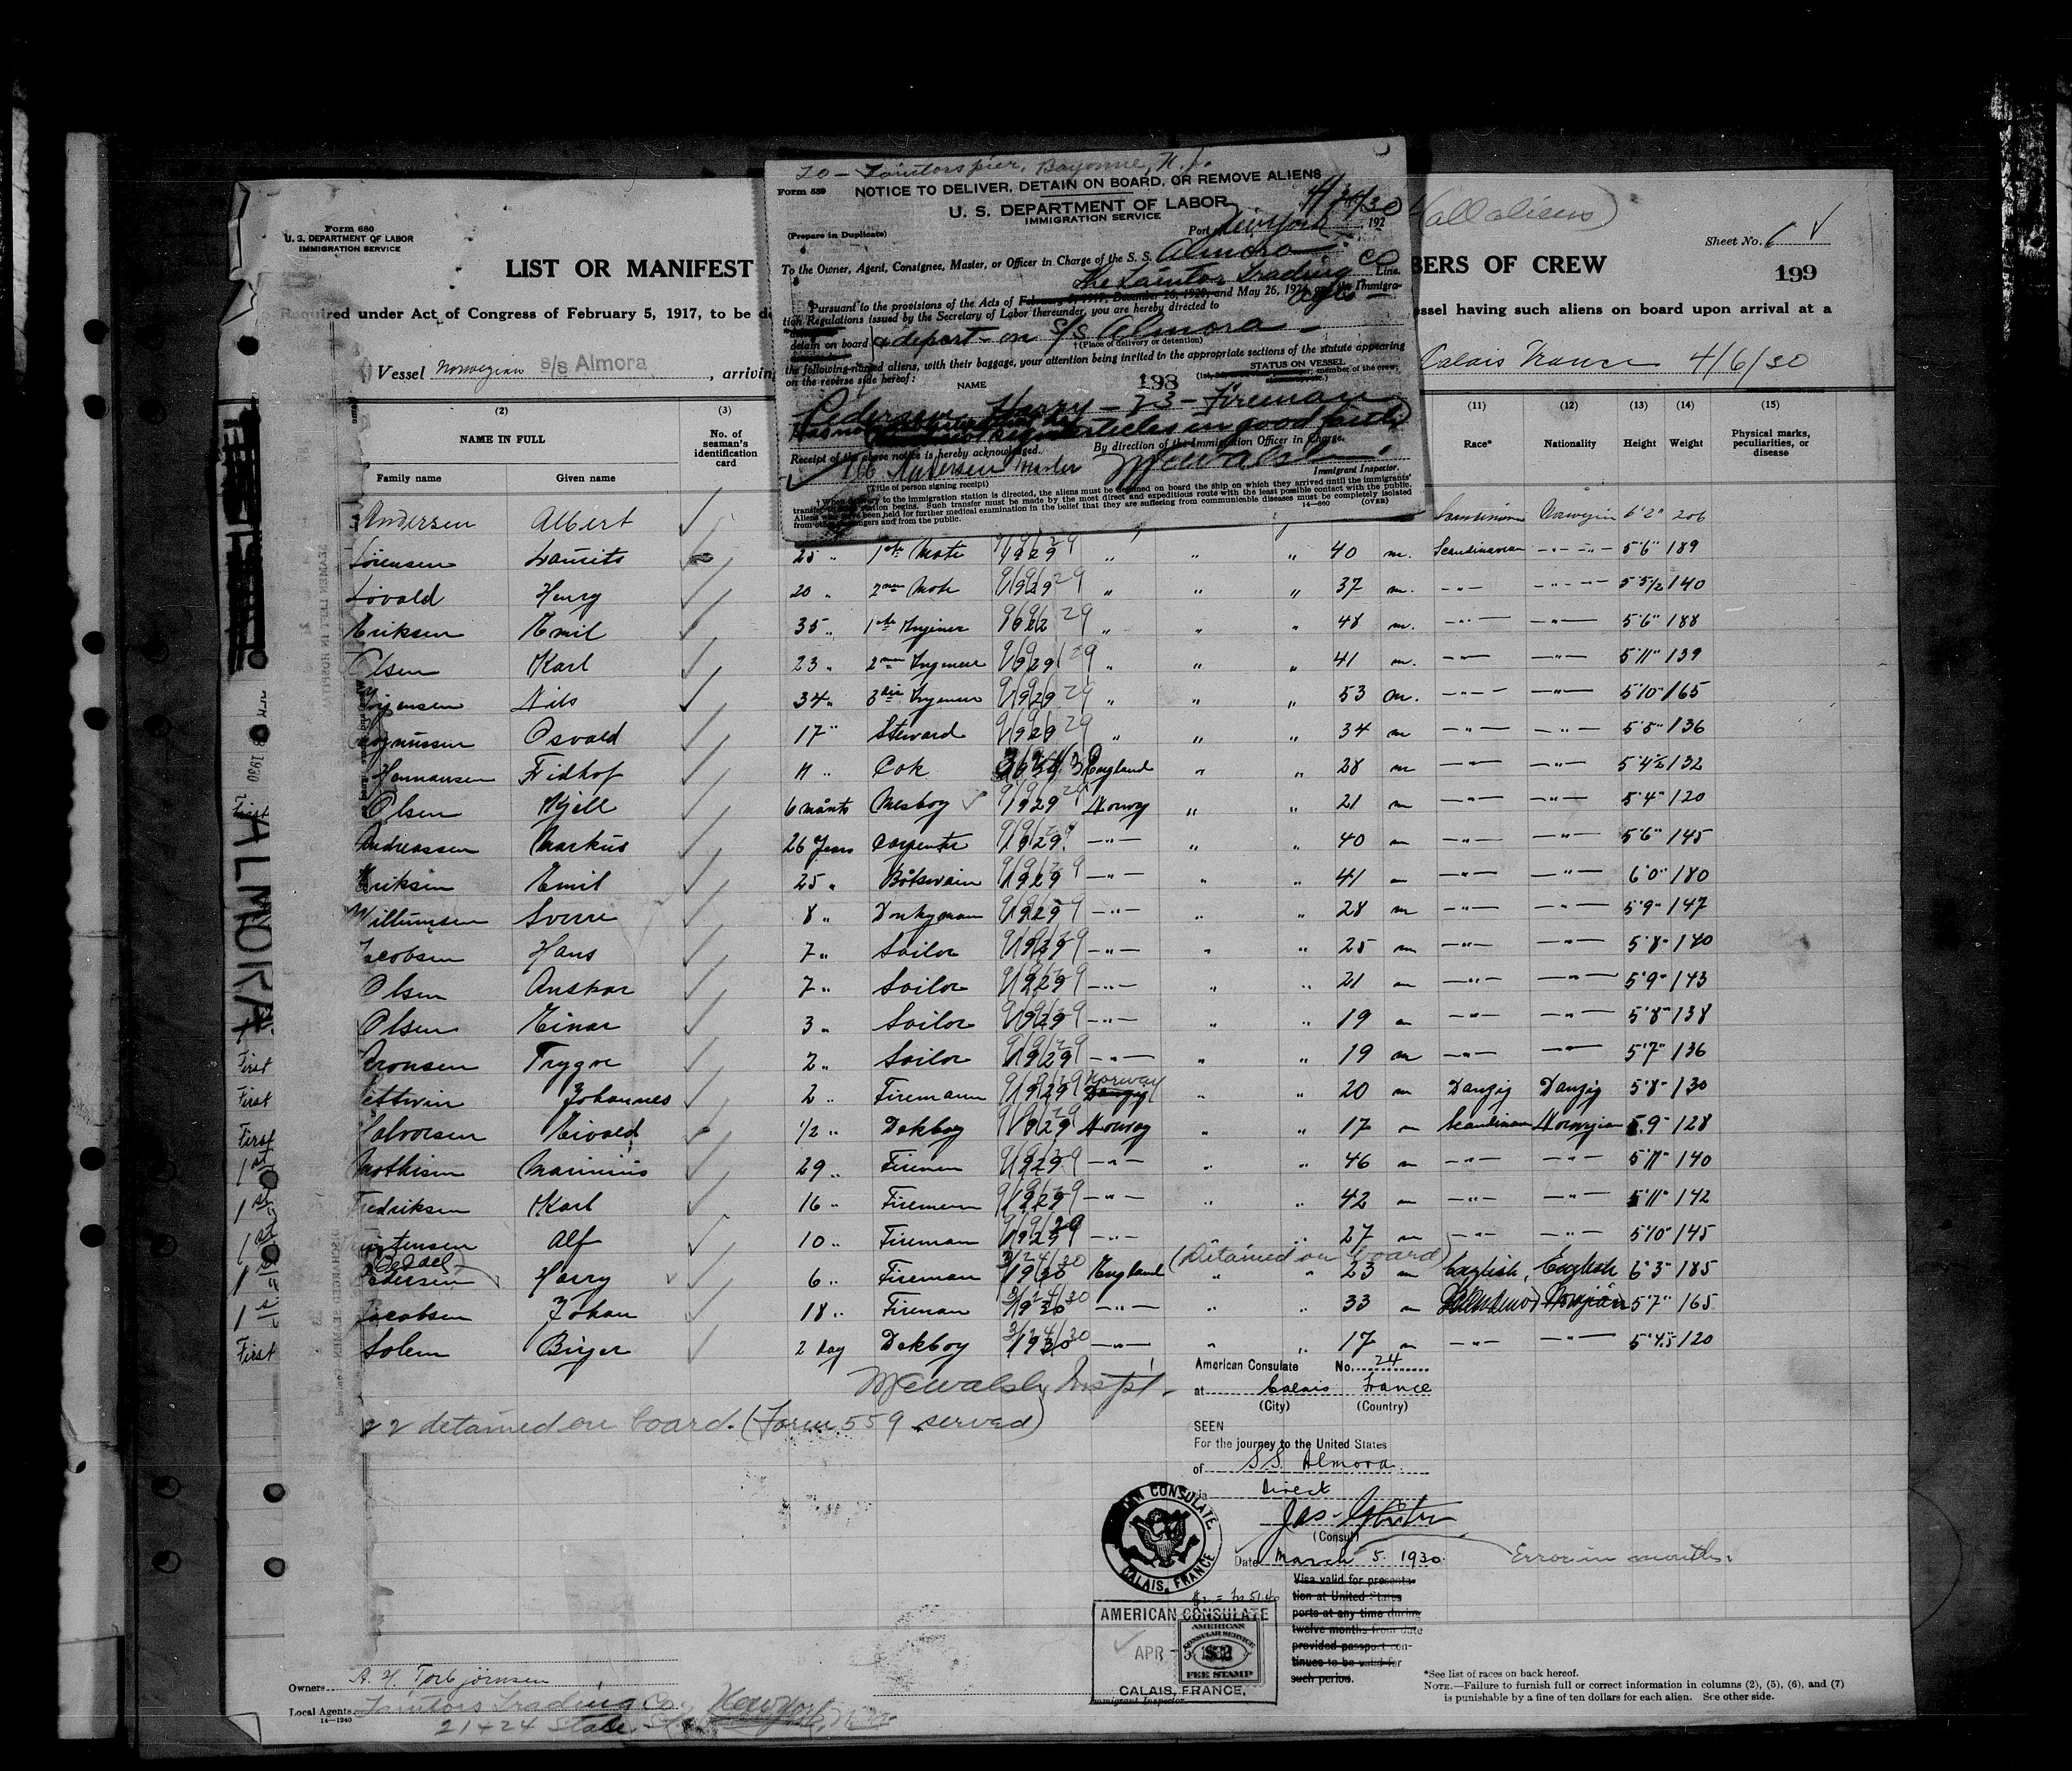 To - Taintors pier, Bayonne, N.J.
Form 559
NOTICE TO DELIVER, DETAIN ON BOARD, OR REMOVE ALIENS
U. S. DEPARTMENT OF LABOR
IMMIGRATION SERVICE
(Prepare in Duplicate)
Port New York, 192
To the Owner, Agent, Consignee, Master, or Officer in Charge of the S. S. Almora
The Taintor Trading Co Line.
Pursuant to the provisions of the Acts of February 5, 1917, December 26, 1920, and May 26, 1924, and the Immigra-
tion Regulations issued by the Secretary of Labor thereunder, you are hereby directed to
detain on board & deport on S/S Almora
† (Place of delivery or detention)
the following-named aliens, with their baggage, your attention being invited to the appropriate sections of the statute appearing
on the reverse side hereof:
NAME
198
STATUS ON VESSEL
member of the crew,
Pedersen, Harry - 23 - Fireman
articles in good faith
By direction of the Immigration Officer in Charge.
Receipt of the above notice is hereby acknowledged.
Alb Andersen Master
McWalsh
Immigrant Inspector.
(Title of person signing receipt)
† When delivery to the immigration station is directed, the aliens must be detained on board the ship on which they arrived until the immigrants'
transfer to such station begins. Such transfer must be made by the most direct and expeditious route with the least possible contact with the public.
Aliens who have been held for further medical examination in the belief that they are suffering from communicable diseases must be completely isolated
from other passengers and from the public.
14—660
(OVER)
Form 680
U. S. DEPARTMENT OF LABOR
IMMIGRATION SERVICE
(all aliens)
Sheet No. 6
199
LIST OR MANIFEST
BERS OF CREW
Required under Act of Congress of February 5, 1917, to be de
essel having such aliens on board upon arrival at a
Vessel Norwegian S/S Almora, arriving
Calais France 4/6/30
(2) (3) (11) (12) (13) (14) (15)
NAME IN FULL
Family name Given name
No. of seaman's identification card
Race* Nationality Height Weight Physical marks, peculiarities, or disease
Andersen Albert Norwegian 6'2" 206
Sörensen Lauritz 25 " 1ste Mate 9/9/29 " " " 40 m. Scandinavian 5'6" 189
Lövold Henry 20 " 2nen Mate 9/9/29 " " " 37 m. 5'5½ 140
Eriksen Emil 35 " 1ste Enginer " " " 48 m. 5'6" 188
Olsen Karl 23 " 2nen Ingeneer 9/9/29 " " " 41 m. 5'11" 139
Nils 34 " 3die Ingeneer 9/9/29 " " " 53 m. 5'10" 165
Magnussen Osvald 17 " Steward 9/9/29 " " " 34 m 5'5" 136
Hermansen Fidhof 11 " Cok England " " 28 m 5'4½ 132
Olsen Kjell 6 månts Mesboy 9/9/29 Norway " " 21 m 5'4" 120
Andreassen Markus 26 Jears Carpenter 9/9/29 " " 40 m 5'6" 145
Eriksen Emil 25 " Båtswain 9/9/29 " " 41 m 6'0" 180
Willumsen Sverre 8 " Donkyman 9/9/29 " " 28 m 5'9" 147
Jacobsen Hans 7 " Sailor 9/9/29 " " 25 m 5'8" 140
Olsen Anskar 7 " Sailor 9/9/29 " " 21 m 5'9" 143
Olsen Einar 3 " Sailor 9/9/29 " " 19 m 5'8" 138
Aronsen Trygve 2 " Sailor 9/9/29 " " 19 m 5'7" 136
Johannes 2 " Firemann 9/9/29 Norway Danzig " " 20 m Danzig Danzig 5'8" 130
Halvorsen Eivald ½ " Dekboy 9/9/29 Norway " " 17 m Scandinavian Norwegian 5'9" 128
Mathisen Marinius 29 " Firemen 9/9/29 " " 46 m 5'11" 140
Fredriksen Karl 16 " Firemenn 9/9/29 " " 42 m 5'11" 142
Alf 10 " Fireman 9/9/29 " 27 m 5'10" 145
(Detained on board)
Pedersen Harry 6 " Fireman 3/24/30 England " " 23 m English, English 6'3" 185
Jacobsen Johan 18 " Fireman 3/24/30 " " 33 m 5'7" 165
Solem Birger 2 day Dekboy 3/24/30 " " 17 m 5'4.5" 120
First
First
First
1st
1st
1st
First
ALMORA
McWalsh Inspt.
22 detained on board. (Form 559 served)
American Consulate No. 24
at Calais France
(City) (Country)
SEEN
For the journey to the United States
of S.S. Almora
Direct
(Consul)
Date March 5. 1930.
Error in month.
Visa valid for presenta-
tion at United States
ports at any time during
twelve months from date
provided passport con-
tinues to be valid for
such period.
AN CONSULATE
CALAIS, FRANCE
AMERICAN CONSULATE
APR
AMERICAN
CONSULAR SERVICE
$2
FEE STAMP
CALAIS, FRANCE,
Immigrant Inspector
Owners A. H. Torbjörnsen
Local Agents Taintors Trading Co. New York
14—1240
21+24 State St.
*See list of races on back hereof.
NOTE.—Failure to furnish full or correct information in columns (2), (5), (6), and (7)
is punishable by a fine of ten dollars for each alien. See other side.